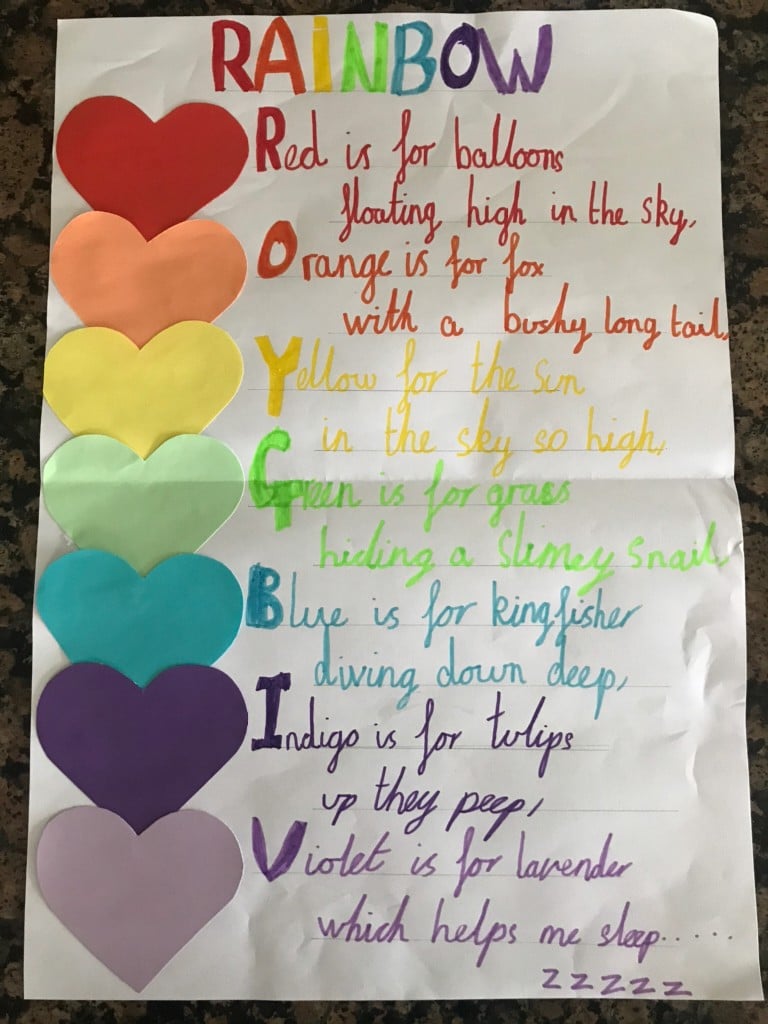 RAINBOW
Red is for balloons
floating high in the sky,
Orange is for fox
with a bushy long tail,
Yellow for the sun
in the sky so high,
Green is for grass
hiding a slimey snail,
Blue is for kingfisher
diving down deep,
Indigo is for tulips
up they peep,
Violet is for lavender
which helps me sleep.....
zzzzz